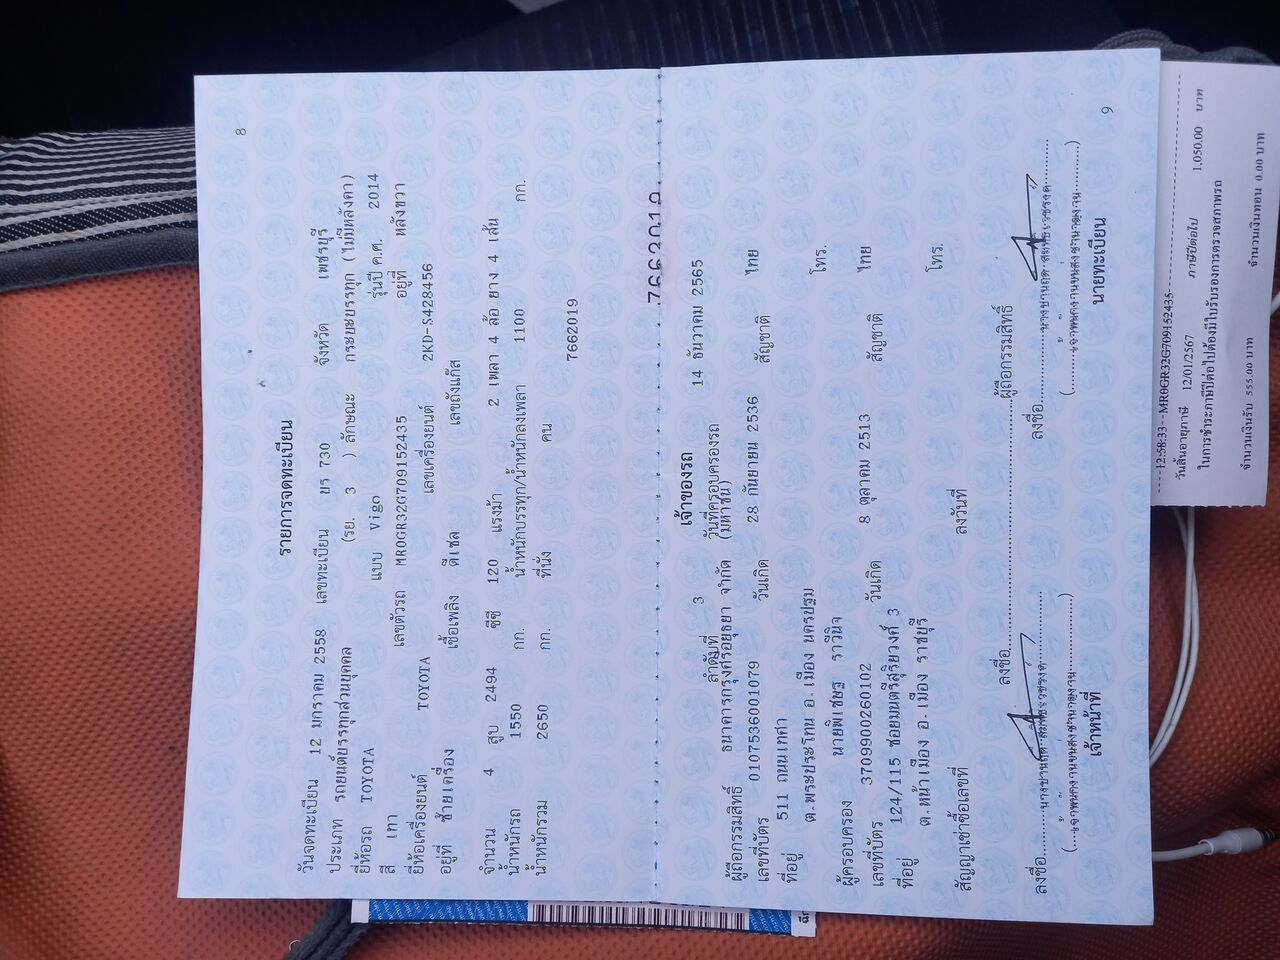 8
รายการจดทะเบียน
วันจดทะเบียน 12 มกราคม 2558 เลขทะเบียน บร 730 จังหวัด เพชรบุรี
ประเภท รถยนต์บรรทุกส่วนบุคคล (รย. 3 ) ลักษณะ กระบะบรรทุก (ไม่มีหลังคา)
ยี่ห้อรถ TOYOTA แบบ Vigo รุ่นปี ค.ศ. 2014
สี เทา เลขตัวรถ MR0GR32G709152435 อยู่ที่ หลังขวา
ยี่ห้อเครื่องยนต์ TOYOTA เลขเครื่องยนต์ 2KD-S428456
อยู่ที่ ซ้ายเครื่อง เชื้อเพลิง ดีเซล เลขถังแก๊ส
จำนวน 4 สูบ 2494 ซีซี 120 แรงม้า 2 เพลา 4 ล้อ ยาง 4 เส้น
น้ำหนักรถ 1550 กก. น้ำหนักบรรทุก/น้ำหนักลงเพลา 1100 กก.
น้ำหนักรวม 2650 กก. ที่นั่ง คน
7662019
7662019
เจ้าของรถ
ลำดับที่ 3 วันที่ครอบครองรถ 14 ธันวาคม 2565
ผู้ถือกรรมสิทธิ์ ธนาคารกรุงศรีอยุธยา จำกัด (มหาชน)
เลขที่บัตร 0107536001079 วันเกิด 28 กันยายน 2536 สัญชาติ ไทย
ที่อยู่ 511 ถนนเทศา
ต.พระประโทน อ.เมือง นครปฐม โทร.
ผู้ครอบครอง นายพิเชษฐ ราวินิจ
เลขที่บัตร 3709900260102 วันเกิด 8 ตุลาคม 2513 สัญชาติ ไทย
ที่อยู่ 124/115 ซอยมนตรีสุริยวงศ์ 3
ต.หน้าเมือง อ.เมือง ราชบุรี โทร.
สัญญาเช่าซื้อเลขที่ ลงวันที่
ลงชื่อ ผู้ถือกรรมสิทธิ์
ลงชื่อ ลงชื่อ
เจ้าหน้าที่ นายทะเบียน
9
----12:58:33--MR0GR32G709152435-
วันสิ้นอายุภาษี 12/01/2567 ภาษีปีต่อไป 1,050.00 บาท
ในการชำระภาษีปีต่อไปต้องมีใบรับรองการตรวจสภาพรถ
จำนวนเงินรับ 555.00 บาท จำนวนเงินทอน 0.00 บาท